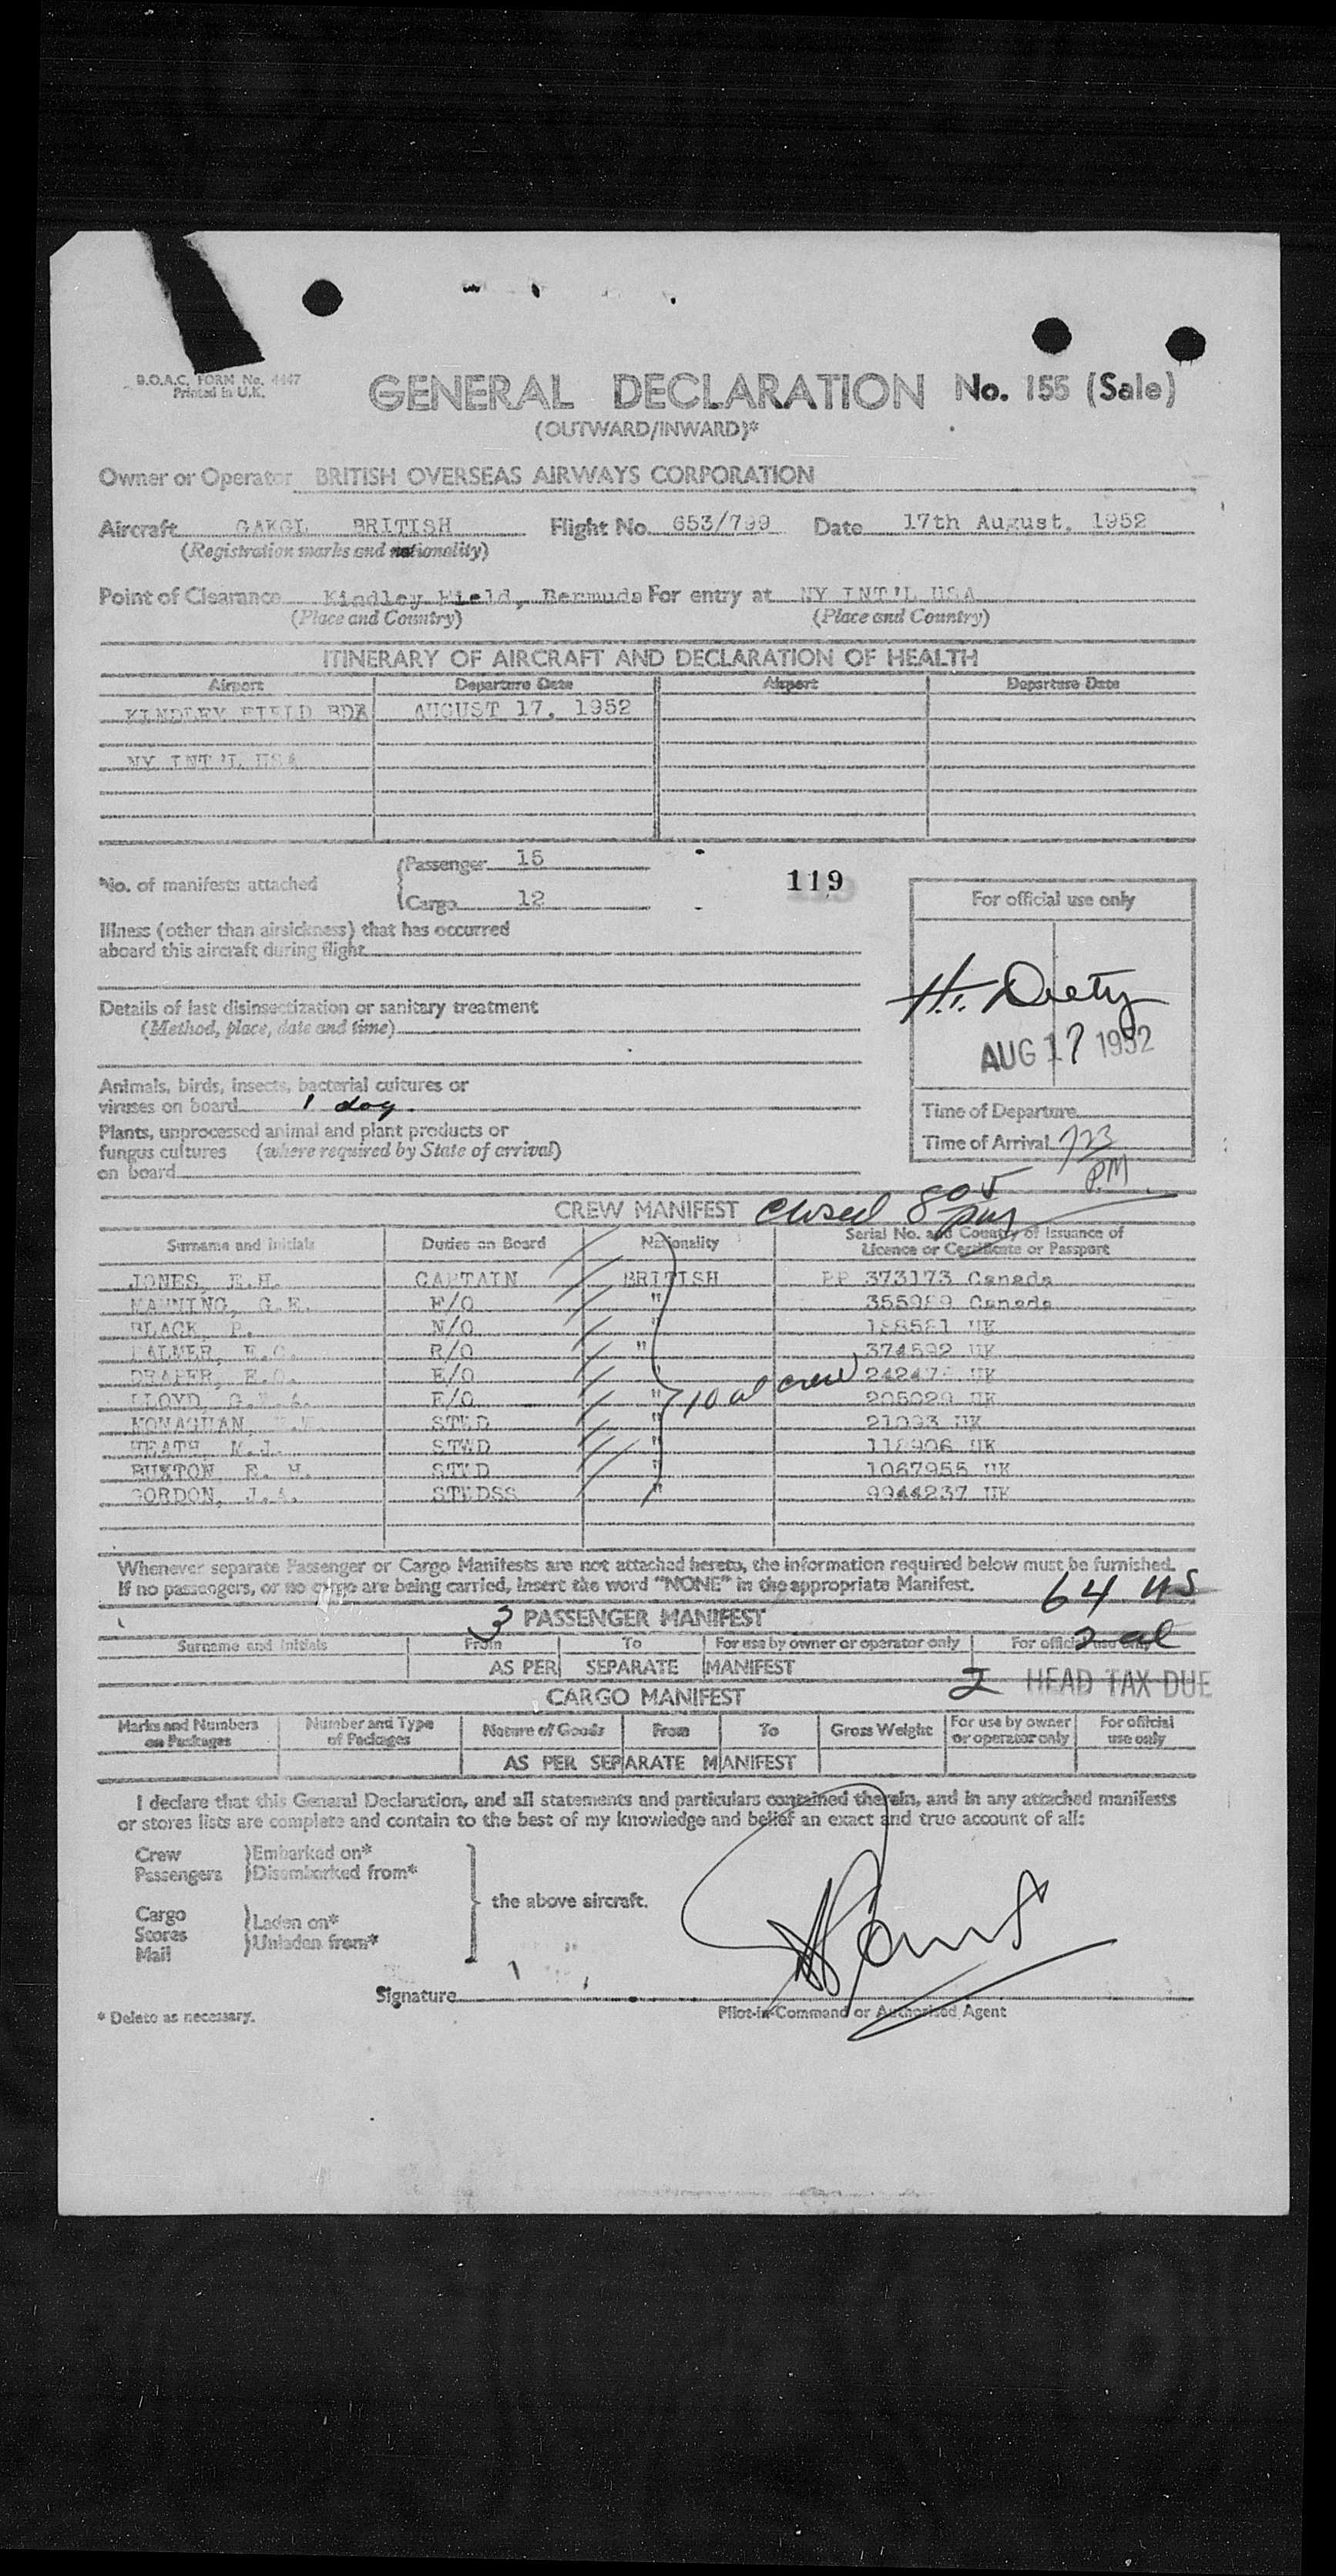 B.O.A.C. FORM No. 4447
Printed in U.K.
GENERAL DECLARATION No. 155 (Sale)
(OUTWARD/INWARD)*
Owner or Operator BRITISH OVERSEAS AIRWAYS CORPORATION
Aircraft GAKGL BRITISH Flight No. 653/799 Date 17th August, 1952
(Registration marks and nationality)
Point of Clearance Kindley Field, Bermuda For entry at NY INT'L USA
(Place and Country) (Place and Country)
ITINERARY OF AIRCRAFT AND DECLARATION OF HEALTH
Airport Departure Date Airport Departure Date
KINDLEY FIELD BDA AUGUST 17, 1952
NY INT'L USA
No. of manifests attached
Passenger 15
Cargo 12
119
For official use only
Illness (other than airsickness) that has occurred
aboard this aircraft during flight
Details of last disinsectization or sanitary treatment
(Method, place, date and time)
AUG 17 1952
Animals, birds, insects, bacterial cultures or
viruses on board 1 dog
Plants, unprocessed animal and plant products or
fungus cultures (where required by State of arrival)
on board
Time of Departure
Time of Arrival 723
P.M.
CREW MANIFEST closed 805 pm
Surname and Initials Duties on Board Nationality Serial No. and Country of Issuance of
Licence or Certificate or Passport
JONES, E.H. CAPTAIN BRITISH PP 373173 Canada
MANNING, G.E. F/O " 355989 Canada
BLACK, P. N/O " 188581 UK
PALMER, E.C. R/O " 374592 UK
DRAPER, E.C. E/O " UK
LLOYD, G. E/O " 205029 UK
MONAGHAN, STWD " 21093 UK
HEATH, M.J. STWD " 118906 UK
BUXTON, E. H. STWD " 1067955 UK
GORDON, J.A. STWDSS " 9944237 UK
10 al crew
Whenever separate Passenger or Cargo Manifests are not attached hereto, the information required below must be furnished.
If no passengers, or no cargo are being carried, insert the word "NONE" in the appropriate Manifest.
64 US
3 PASSENGER MANIFEST
2 al
Surname and Initials From To For use by owner or operator only For official use only
AS PER SEPARATE MANIFEST
2 HEAD TAX DUE
CARGO MANIFEST
Marks and Numbers on Packages Number and Type of Packages Nature of Goods From To Gross Weight For use by owner or operator only For official use only
AS PER SEPARATE MANIFEST
I declare that this General Declaration, and all statements and particulars contained therein, and in any attached manifests
or stores lists are complete and contain to the best of my knowledge and belief an exact and true account of all:
Crew Embarked on*
Passengers Disembarked from*
the above aircraft.
Cargo Laden on*
Stores Unladen from*
Mail
Signature
Pilot-in-Command or Authorised Agent
* Delete as necessary.